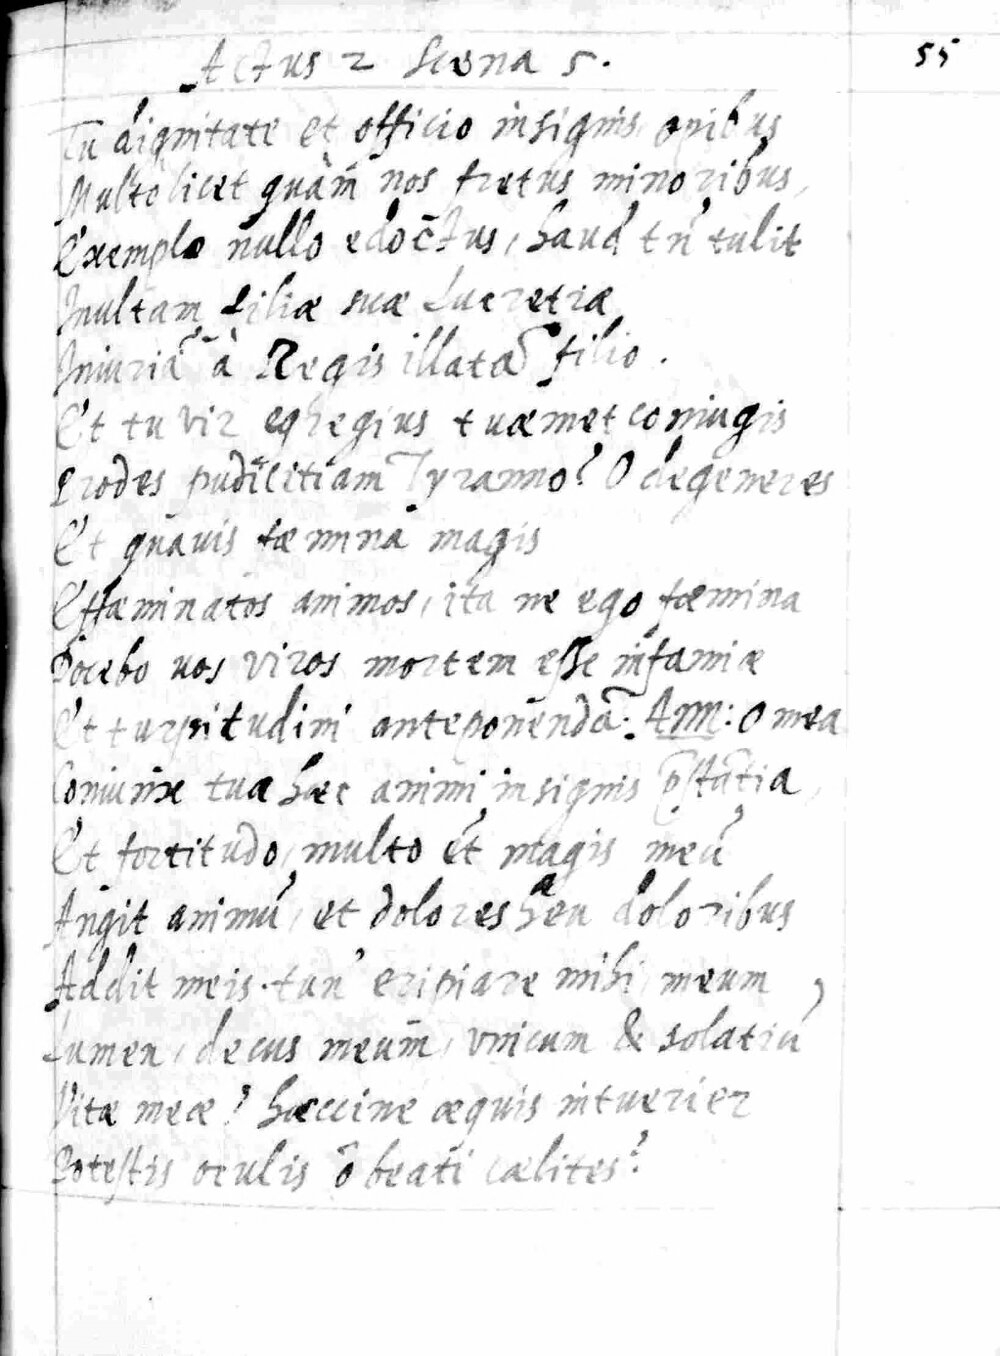 Actus 2 Scena 5. 55
Tu dignitate et officio insignis, opibus
Multo licet quàm nos fretus minoribus,
Exemplo nullo edoctus, haud tn̄ tulit
Inultam filiæ suæ Lucretiæ
Iniuriā à Regis illatā filio.
Et tu vir egregius tuæmet coniugis
Prodes pudicitiam Tyranno? O degeneres
Et quāuis fæminā magis
Effæminatos animos, ita ne ego fæmina
Docebo vos viros mortem esse infamiæ
Et turpitudini anteponendā. Ann: O mea
Coniunx tua hæc animi insignis p̄stātia,
Et fortitudo, multo ēt magis meū
Angit animū, et dolores heu doloribus
Addit meis. tun' eripiare mihi meum
Lumen, decus meum, vnicum & solatiū
Vitæ meæ? hæccine æquis intuerier
Potestis oculis ô beati cælites?